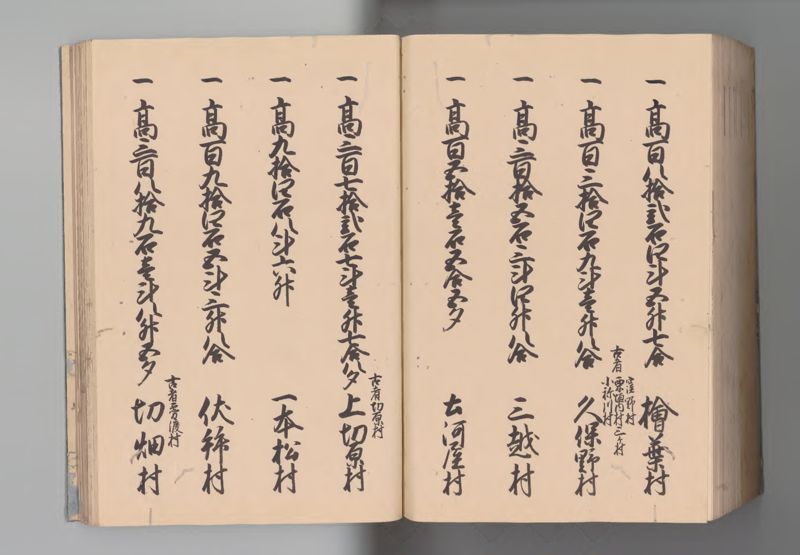 一 高百八拾弐石四斗五升七合 檜葉村
一 高百三拾四石九斗壱升八合 久保野村
古者
窪野村
栗垣内村三ヶ村
小祢川村
一 高三百拾五石三斗四升八合 三越村
一 高百五拾壱石五合五夕 古河屋村
一 高三百七拾弐石七斗壱升七合八夕 上切原村
古者切原村
一 高九拾四石八斗六升 一本松村
一 高百九拾四石五斗三升八合 伏拝村
一 高三百八拾九石壱斗八升五夕 切畑村